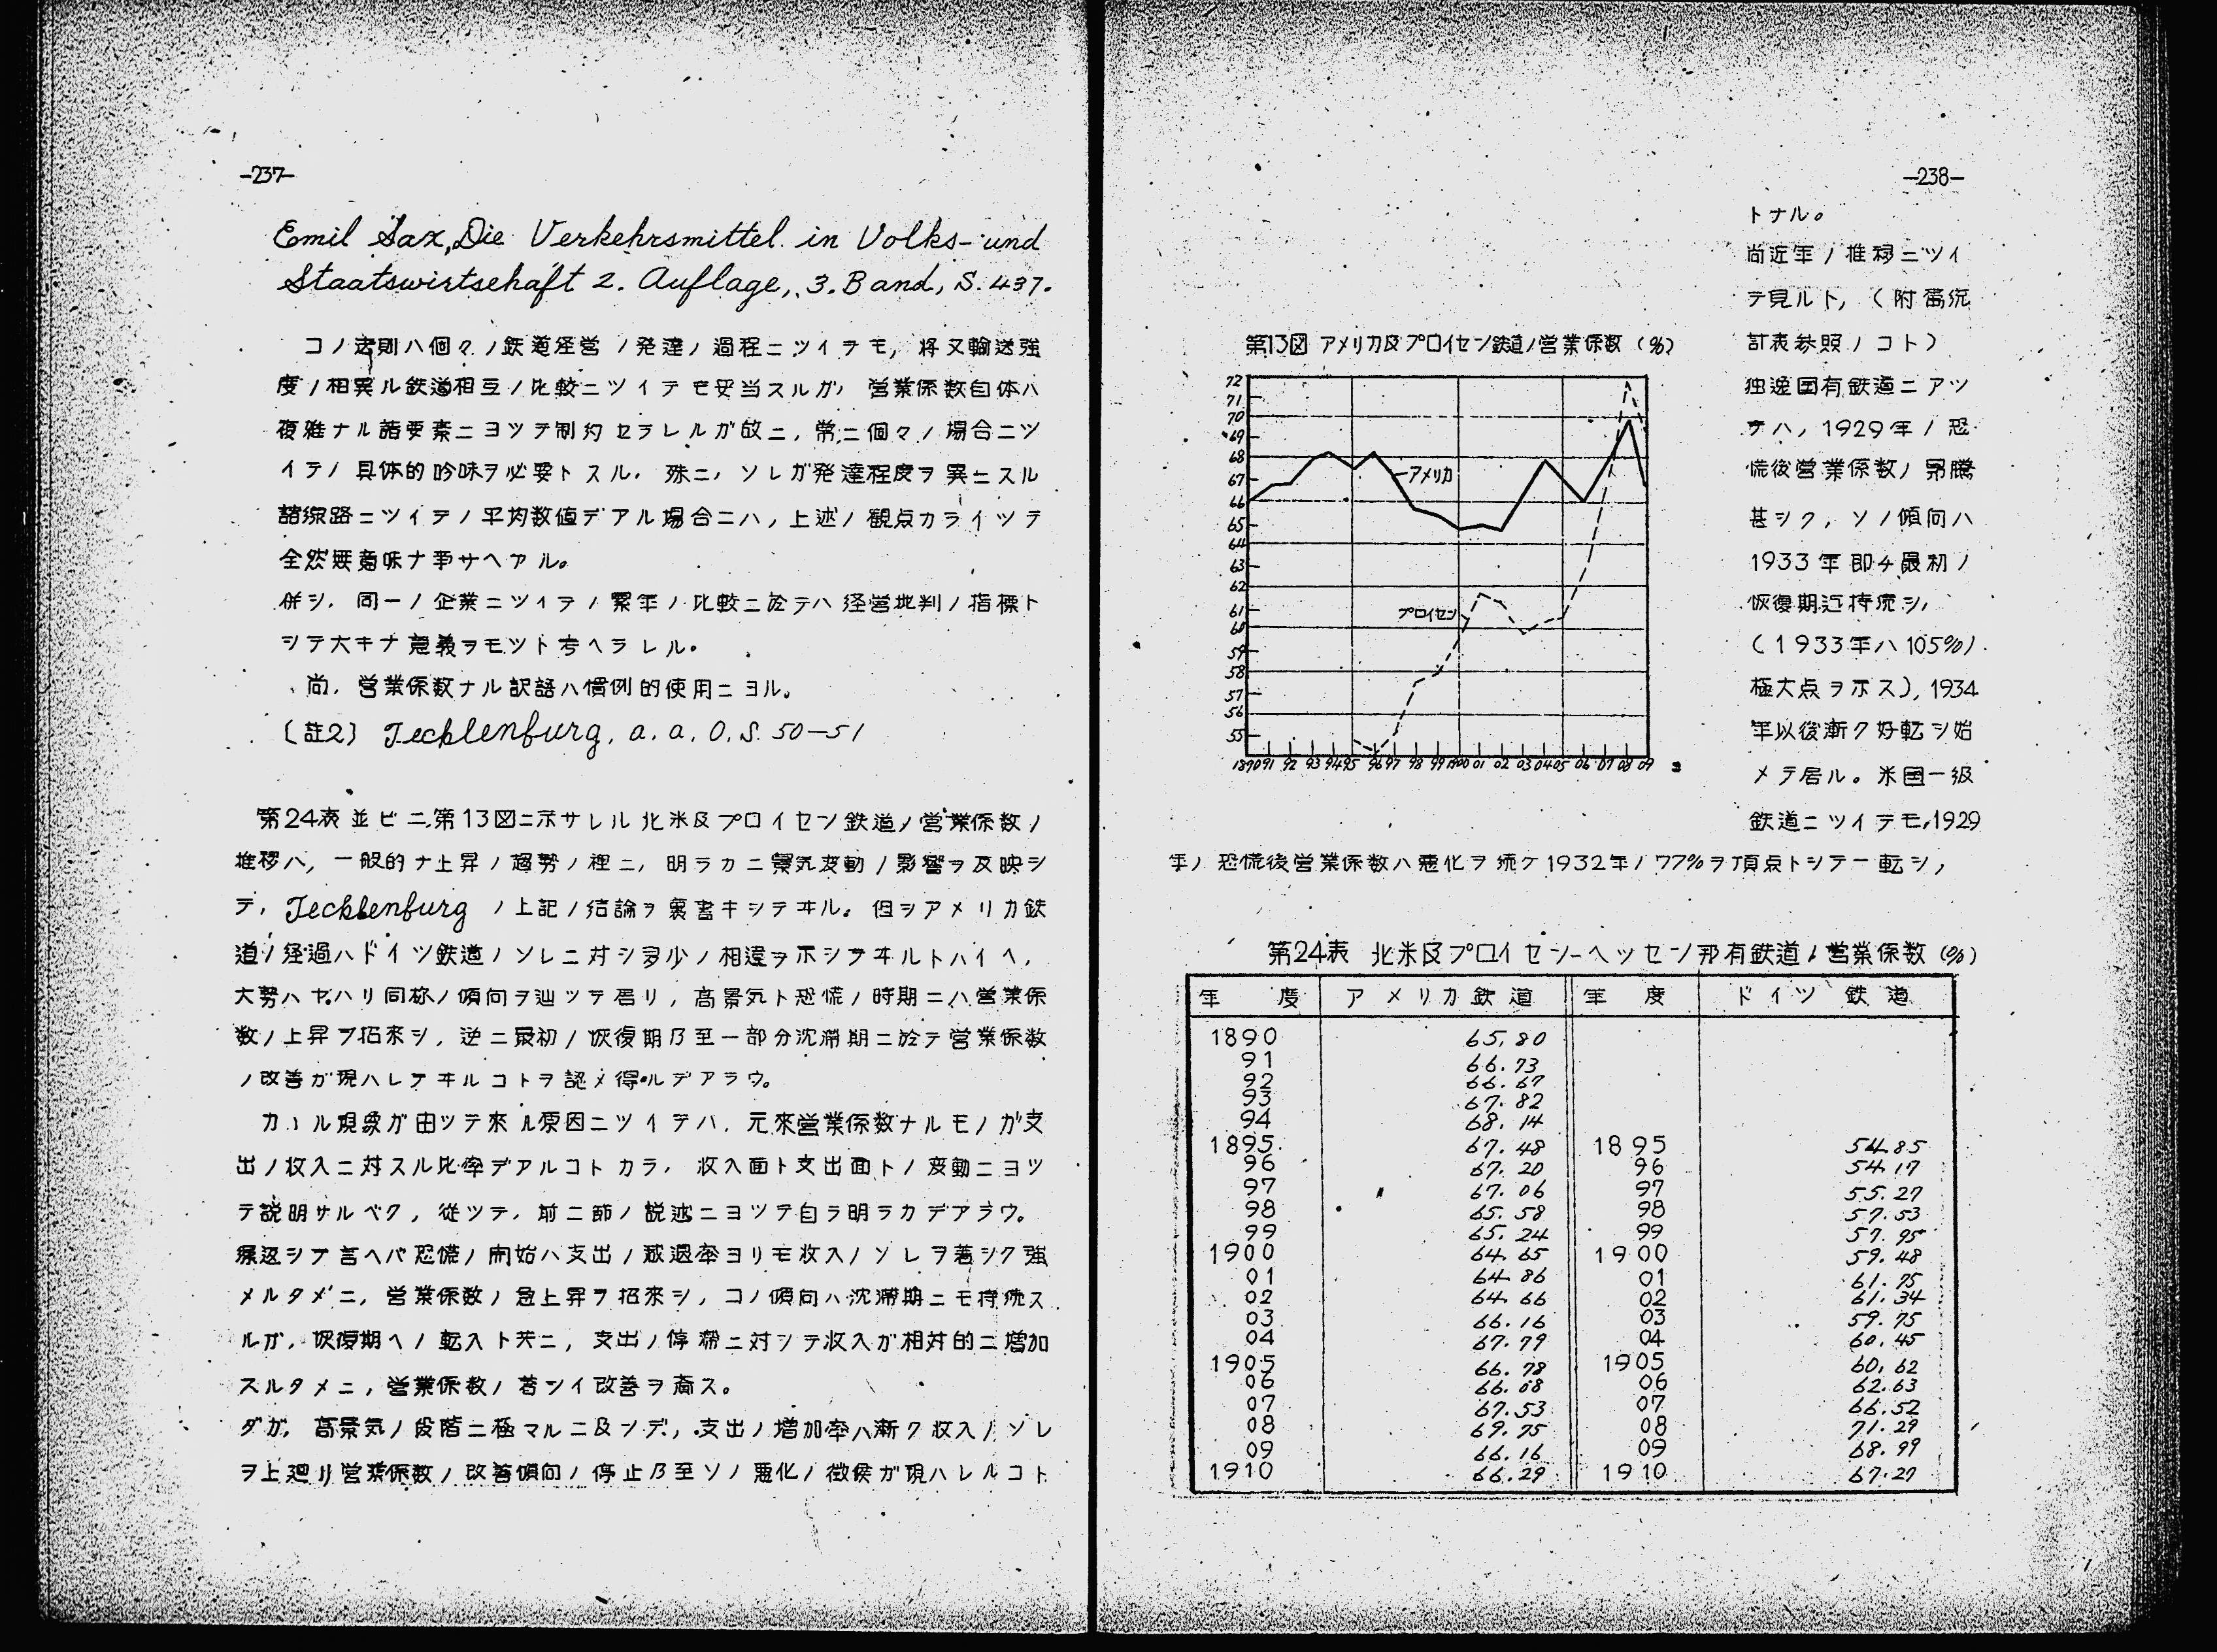 -237-
Emil Sax, Die Verkehrsmittel in Volks- und
Staatswirtschaft 2. Auflage, 3. Band, S. 437.
コノ法則ハ個々ノ鉄道経営ノ発達ノ過程ニツイテモ, 将又輸送強
度ノ相異ル鉄道相互ノ比較ニツイテモ妥当スルガ, 営業係数自体ハ
複雑ナル諸要素ニヨツテ制約セラレルガ故ニ, 常ニ個々ノ場合ニツ
イテノ具体的吟味ヲ必要トスル. 殊ニ, ソレガ発達程度ヲ異ニスル
諸線路ニツイテノ平均数値デアル場合ニハ, 上述ノ観点カライツテ
全然無意味ナ事サヘアル。
併シ, 同一ノ企業ニツイテノ累年ノ比較ニ於テハ経営批判ノ指標ト
シテ大キナ意義ヲモツト考ヘラレル.
尚, 営業係数ナル訳語ハ慣例的使用ニヨル.
(註2) Tecklenburg, a. a. O. S. 50-51
第24表並ビニ第13図ニ示サレル北米及プロイセン鉄道ノ営業係数ノ
推移ハ, 一般的ナ上昇ノ趨勢ノ裡ニ, 明ラカニ景気変動ノ影響ヲ反映シ
テ, Tecklenburg ノ上記ノ結論ヲ裏書キシテヰル. 但シアメリカ鉄
道ノ経過ハドイツ鉄道ノソレニ対シ多少ノ相違ヲ示シテヰルトハイヘ,
大勢ハヤハリ同称ノ傾向ヲ辿ツテ居リ, 高景気ト恐慌ノ時期ニハ営業係
数ノ上昇ヲ招来シ, 逆ニ最初ノ恢復期乃至一部分沈滞期ニ於テ営業係数
ノ改善ガ現ハレテヰルコトヲ認メ得ルデアラウ。
カヽル現象ガ由ツテ来ル原因ニツイテハ, 元来営業係数ナルモノガ支
出ノ収入ニ対スル比率デアルコトカラ, 収入面ト支出面トノ変動ニヨツ
テ説明サルベク, 従ツテ, 前二節ノ説述ニヨツテ自ラ明ラカデアラウ。
繰返シテ言ヘバ恐慌ノ開始ハ支出ノ減退率ヨリモ収入ノソレヲ著シク強
メルタメニ, 営業係数ノ急上昇ヲ招来シ, コノ傾向ハ沈滞期ニモ持続ス
ルガ, 恢復期ヘノ転入ト共ニ, 支出ノ停滞ニ対シテ収入ガ相対的ニ増加
スルタメニ, 営業係数ノ著シイ改善ヲ齎ス。
ダガ, 高景気ノ段階ニ極マルニ及ンデ, 支出ノ増加率ハ漸ク収入ノソレ
ヲ上廻リ営業係数ノ改善傾向ノ停止乃至ソノ悪化ノ徴侯ガ現ハレルコト
-238-
トナル。
尚近年ノ推移ニツイ
テ見ルト, (附属統
計表参照ノコト)
独逸国有鉄道ニアツ
テハ, 1929年ノ恐
慌後営業係数ノ昂騰
甚シク, ソノ傾向ハ
1933年即チ最初ノ
恢復期迄持続シ,
(1933年ハ105%ノ
極大点ヲ示ス), 1934
年以後漸ク好転シ始
メテ居ル。米国一級
鉄道ニツイテモ, 1929
年ノ恐慌後営業係数ハ悪化ヲ続ケ1932年ノ77%ヲ頂点トシテ一転シ,
第13図 アメリカ及プロイセン鉄道ノ営業係数 (%)
72
71
70
69
68
67
66
65
64
63
62
61
60
59
58
57
56
55
アメリカ
プロイセン
1890 91 92 93 94 95 96 97 98 99 1900 01 02 03 04 05 06 07 08 09
第24表 北米及プロイセン-ヘッセン邦有鉄道ノ営業係数 (%)
年度 アメリカ鉄道 年度 ドイツ鉄道
1890 65.80
91 66.73
92 66.67
93 67.82
94 68.14
1895 67.48 1895 54.85
96 67.20 96 54.17
97 67.06 97 55.27
98 65.58 98 57.53
99 65.24 99 57.95
1900 64.65 1900 59.48
01 64.86 01 61.75
02 64.66 02 61.34
03 66.16 03 59.75
04 67.79 04 60.45
1905 66.78 1905 60.62
06 66.08 06 62.63
07 67.53 07 66.52
08 69.75 08 71.29
09 66.16 09 68.99
1910 66.29 1910 67.27